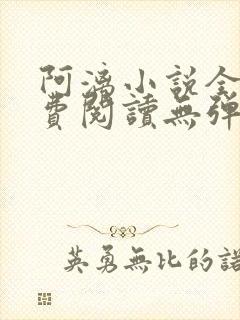 阿漓小說全
費閱讀無彈
英勇無比的諾